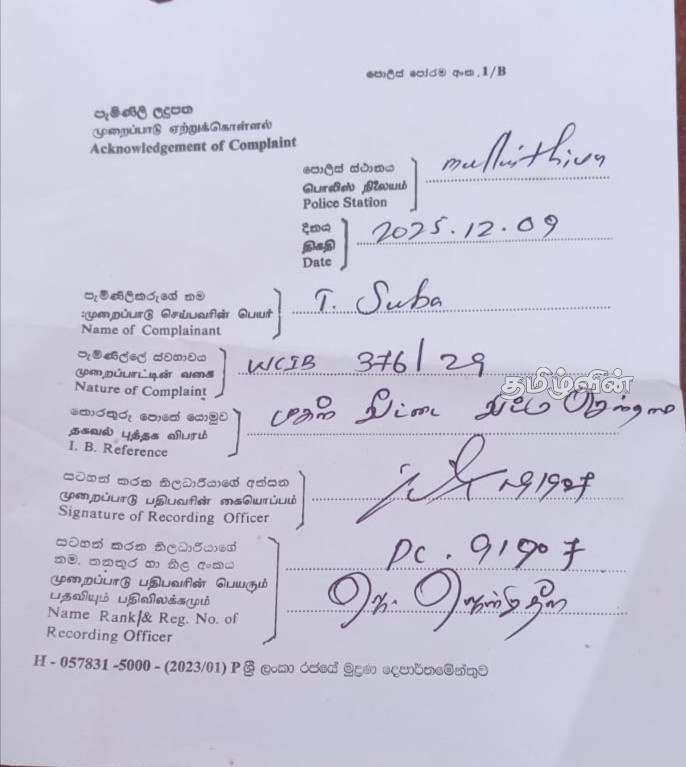 පොලිස් පෝරම අංක. 1/B
පැමිණිලි ලදුපත
முறைப்பாடு ஏற்றுக்கொள்ளல்
Acknowledgement of Complaint
පොලිස් ස්ථානය
பொலிஸ் நிலையம்
Police Station
දිනය
திகதி
Date
2025.12.09
පැමිණිලිකරුගේ නම
முறைப்பாடு செய்பவரின் பெயர்
Name of Complainant
T. Suba
පැමිණිල්ලේ ස්වභාවය
முறைப்பாட்டின் வகை
Nature of Complaint
WCIB 376/29
தமிழ்வின்
තොරතුරු පොතේ යොමුව
தகவல் புத்தக விபரம்
I. B. Reference
வீட்டை
සටහන් කරන නිලධාරියාගේ අත්සන
முறைப்பாடு பதிபவரின் கையொப்பம்
Signature of Recording Officer
සටහන් කරන නිලධාරියාගේ
නම, තනතුර හා නිළ අංකය
முறைப்பாடு பதிபவரின் பெயரும்
பதவியும் பதிவிலக்கமும்
Name Rank/& Reg. No. of
Recording Officer
PC. 91907
H - 057831 -5000 - (2023/01) P ශ්‍රී ලංකා රජයේ මුද්‍රණ දෙපාර්තමේන්තුව